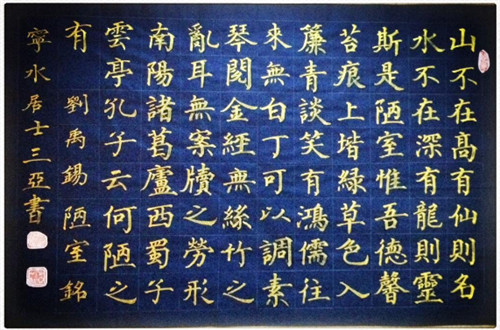 山不在高有仙則名
水不在深有龍則靈
斯是陋室惟吾德馨
苔痕上堦綠草色入
簾青談笑有鴻儒往
來無白丁可以調素
琴閱金經無絲竹之
亂耳無案牘之勞形
南陽諸葛廬西蜀子
雲亭孔子云何陋之
有 劉禹錫 陋室銘
寧水居士三亞書